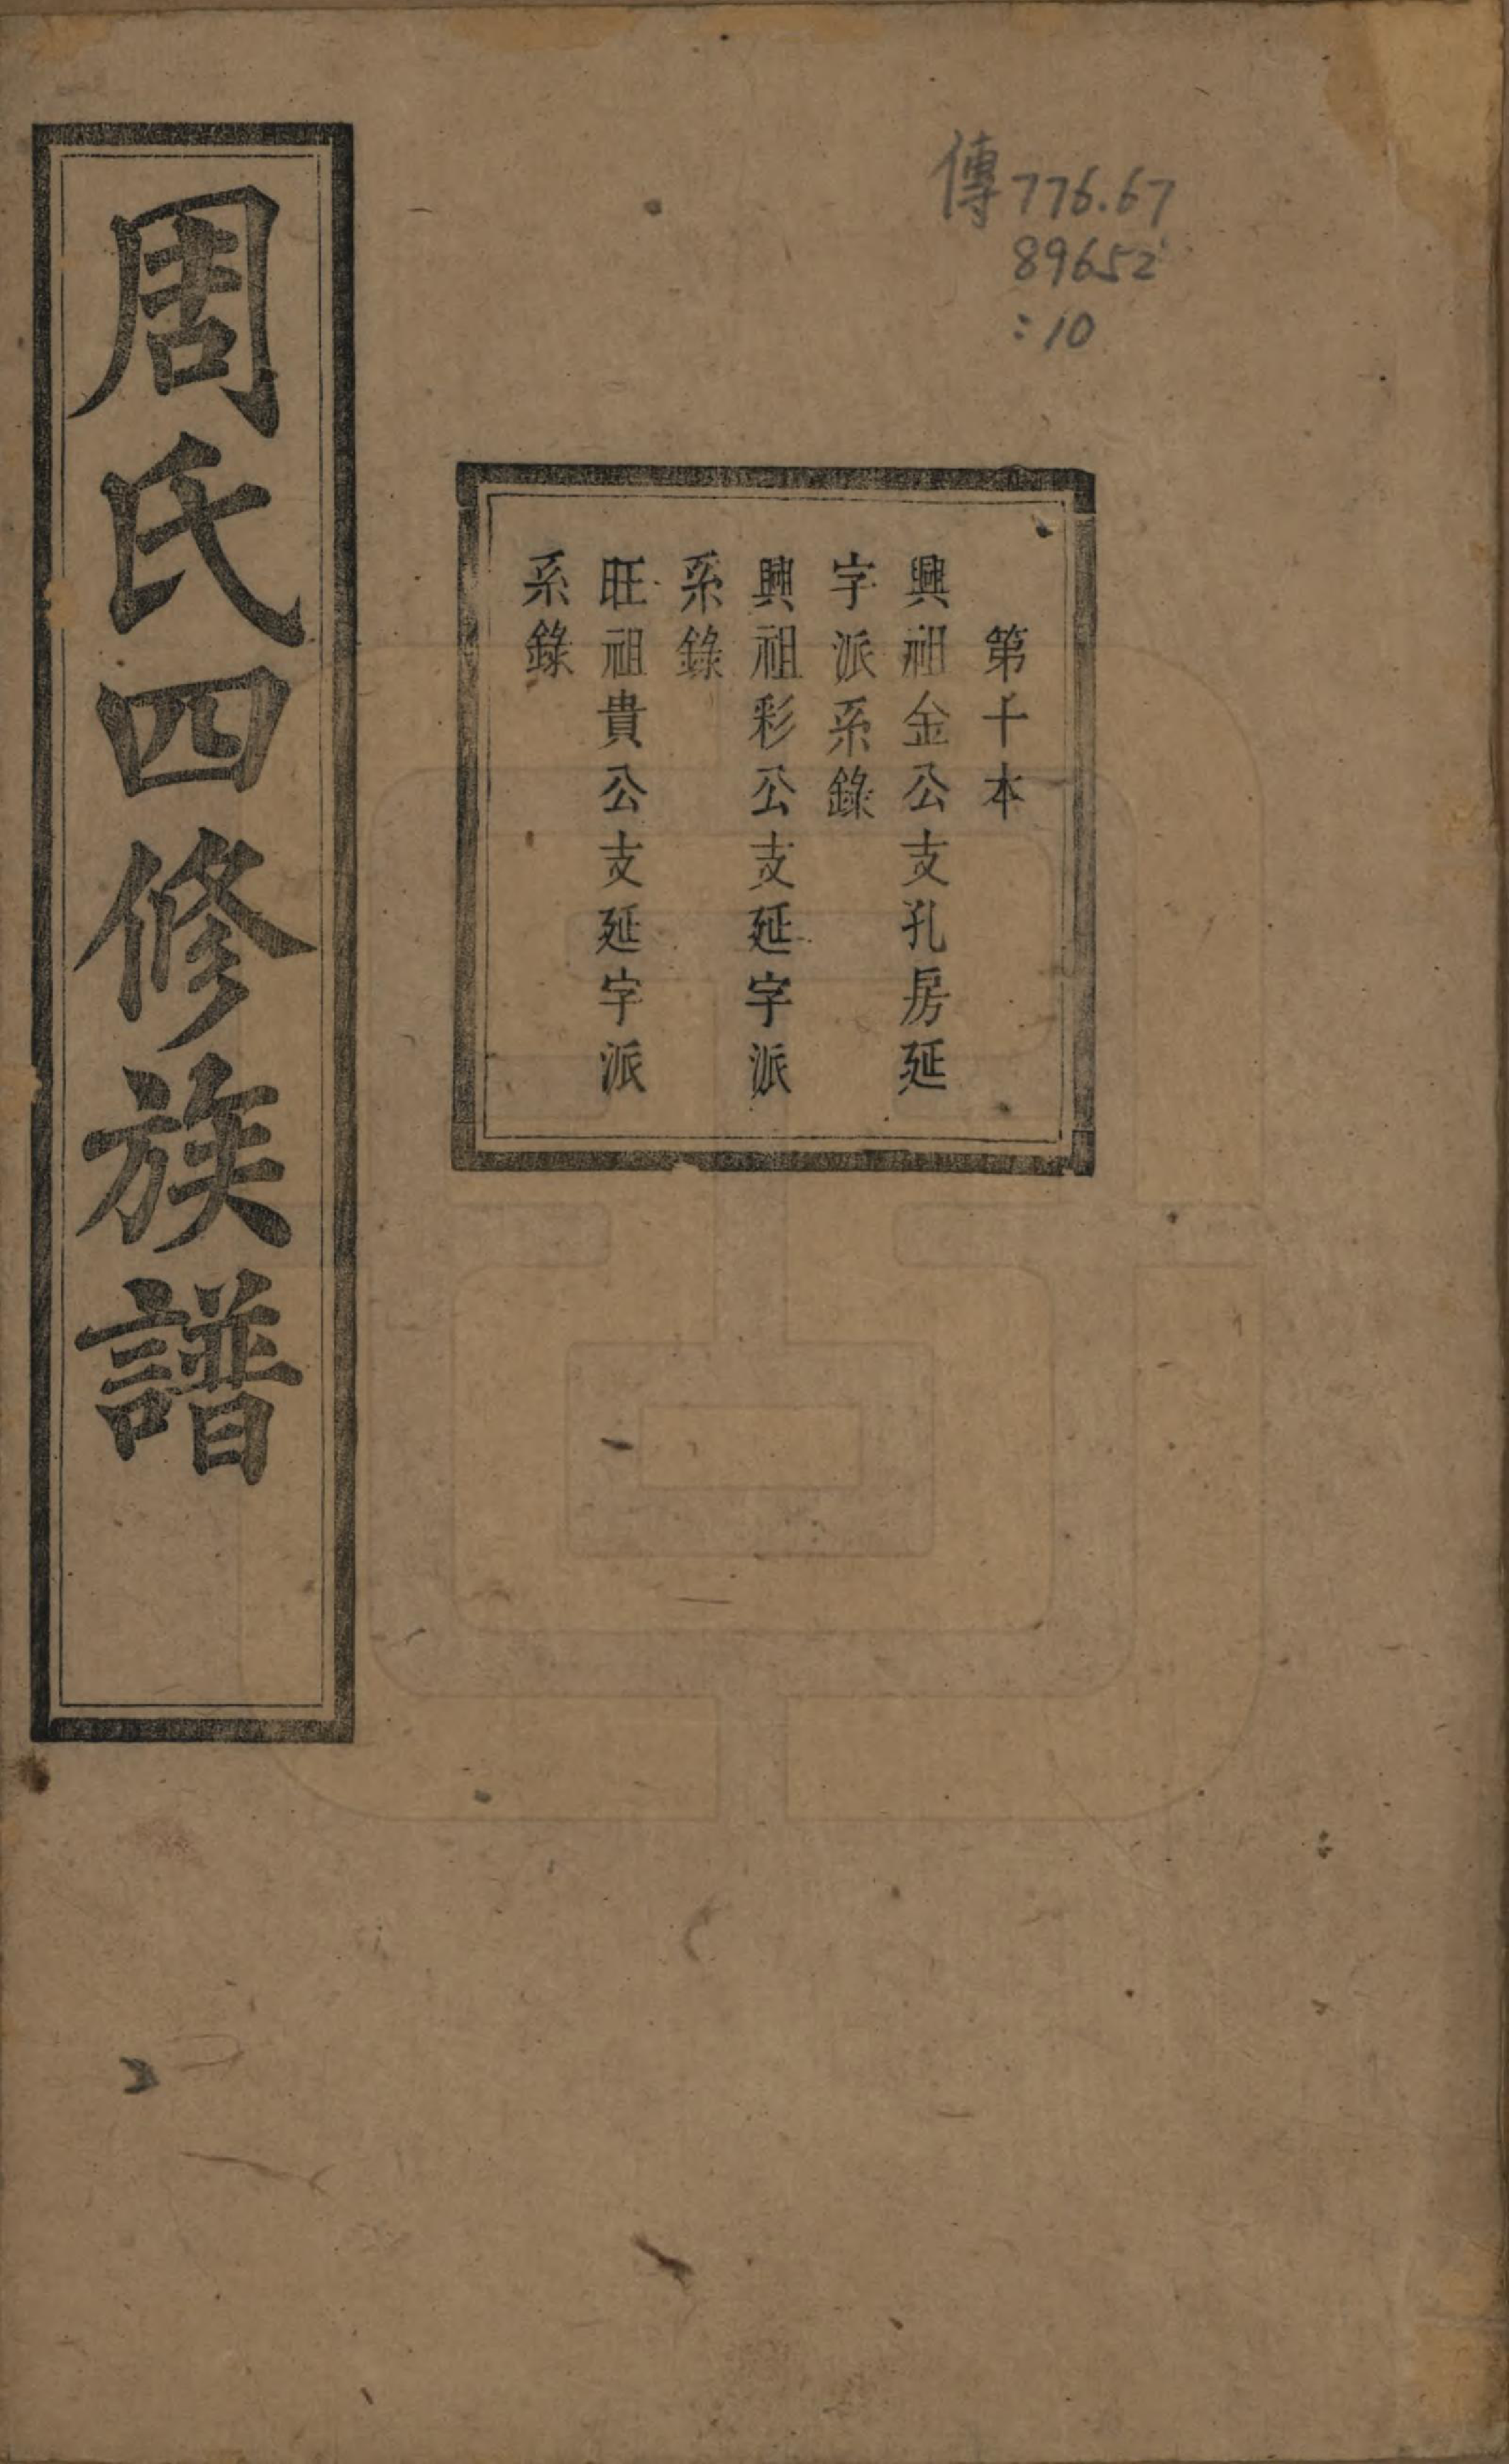 傳776.67
89652
:10
第十本
興祖金公支孔房延
字派系錄
興祖彩公支延字派
系錄
旺祖貴公支延字派
系錄
周氏四修族譜